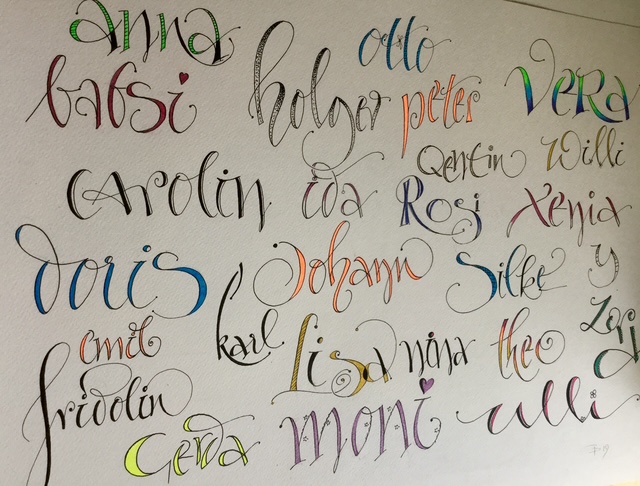 anna otto
babsi holger peter VERA
Qentin Willi
CAROlin ida Rosi Xenia
doris Johann Silke y
emil karl Lisa nina theo Zora
fridolin
Gerda moni ulli